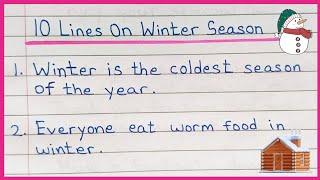 10 Lines On Winter Season
1. Winter is the coldest season
of the year.
2. Everyone eat worm food in
winter.